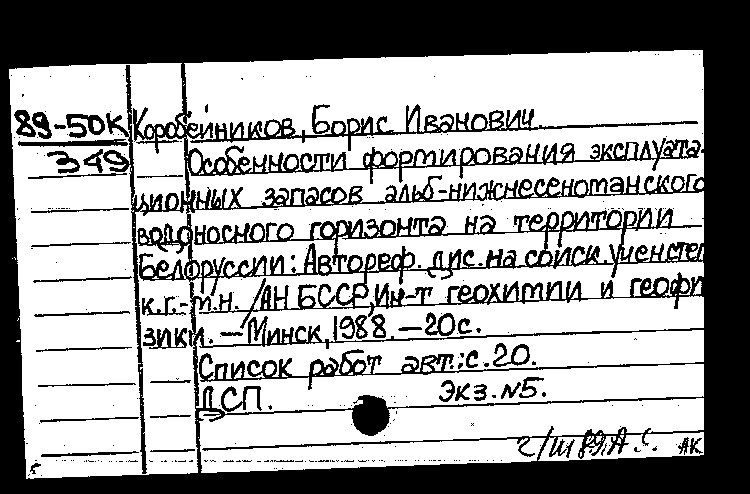 89-50К Коробейников, Борис Иванович
349 Особенности формирования эксплуата-
ционных запасов альб-нижнесеноманского
водоносного горизонта на территории
Белоруссии: Автореф. дис. на соиск. учен. степ
к.г.-м.н. / АН БССР, Ин-т геохимии и геофи
зики. — Минск, 1988. — 20с.
Список работ авт.: с. 20.
ДСП. Экз. №5.
АК